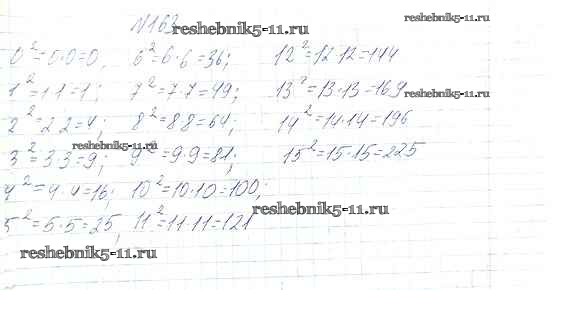 №163
reshebnik5-11.ru
reshebnik5-11.ru
0²=0·0=0, 6²=6·6=36; 12²=12·12=144
1²=1·1=1; 7²=7·7=49; 13²=13·13=169
reshebnik5-11.ru
2²=2·2=4; 8²=8·8=64; 14²=14·14=196
reshebnik5-11.ru
3²=3·3=9; 9²=9·9=81; 15²=15·15=225
4²=4·4=16; 10²=10·10=100;
reshebnik5-11.ru
5²=5·5=25, 11²=11·11=121
reshebnik5-11.ru